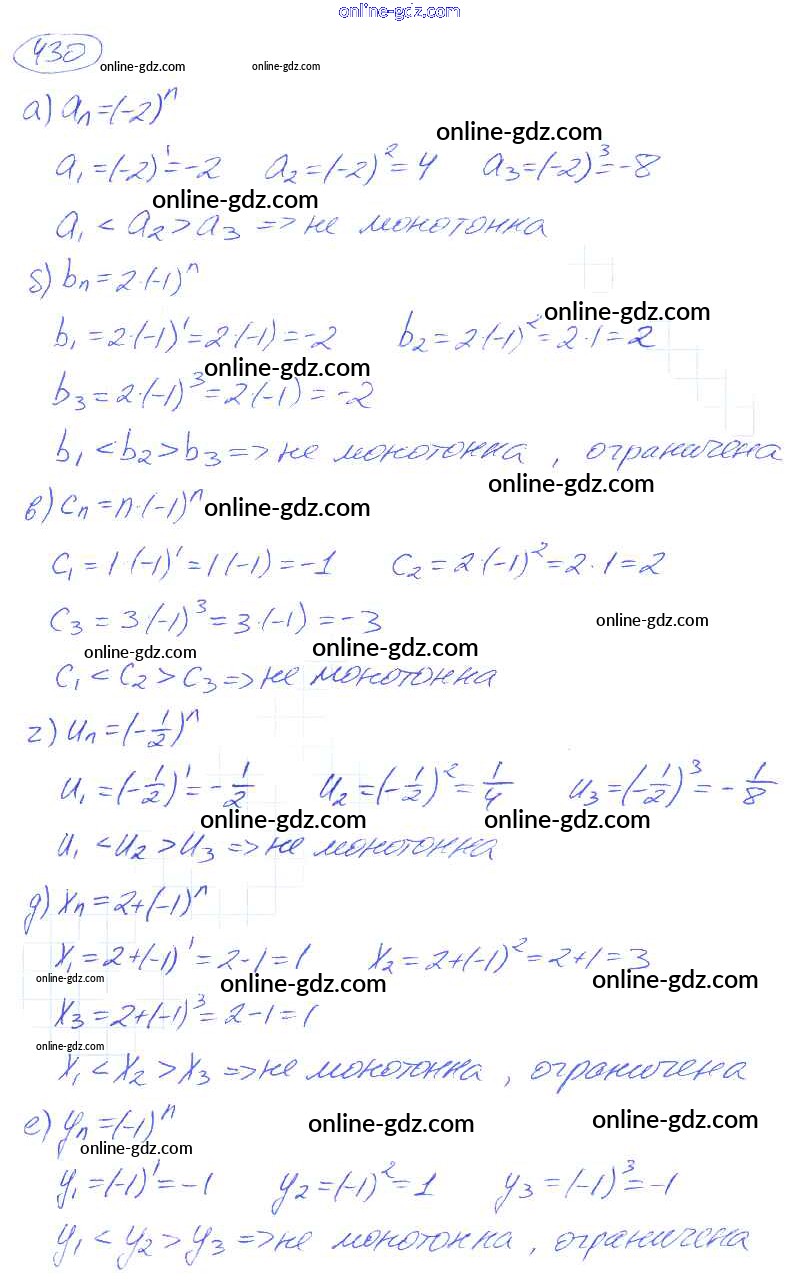 online-gdz.com
430 online-gdz.com online-gdz.com
а) aₙ=(-2)ⁿ
online-gdz.com
a₁=(-2)¹=-2 a₂=(-2)²=4 a₃=(-2)³=-8
online-gdz.com
a₁ < a₂ > a₃ => не монотонна
б) bₙ=2·(-1)ⁿ
online-gdz.com
b₁=2·(-1)¹=2·(-1)=-2 b₂=2·(-1)²=2·1=2
online-gdz.com
b₃=2·(-1)³=2·(-1)=-2
b₁ < b₂ > b₃ => не монотонна, ограничена
online-gdz.com
в) cₙ=n·(-1)ⁿ online-gdz.com
c₁=1·(-1)¹=1·(-1)=-1 c₂=2·(-1)²=2·1=2
c₃=3·(-1)³=3·(-1)=-3 online-gdz.com
online-gdz.com online-gdz.com
c₁ < c₂ > c₃ => не монотонна
г) uₙ=(-1/2)ⁿ
u₁=(-1/2)¹=-1/2 u₂=(-1/2)²=1/4 u₃=(-1/2)³=-1/8
online-gdz.com online-gdz.com
u₁ < u₂ > u₃ => не монотонна
д) xₙ=2+(-1)ⁿ
x₁=2+(-1)¹=2-1=1 x₂=2+(-1)²=2+1=3
online-gdz.com online-gdz.com online-gdz.com
x₃=2+(-1)³=2-1=1
online-gdz.com
x₁ < x₂ > x₃ => не монотонна, ограничена
е) yₙ=(-1)ⁿ online-gdz.com online-gdz.com
online-gdz.com
y₁=(-1)¹=-1 y₂=(-1)²=1 y₃=(-1)³=-1
y₁ < y₂ > y₃ => не монотонна, ограничена